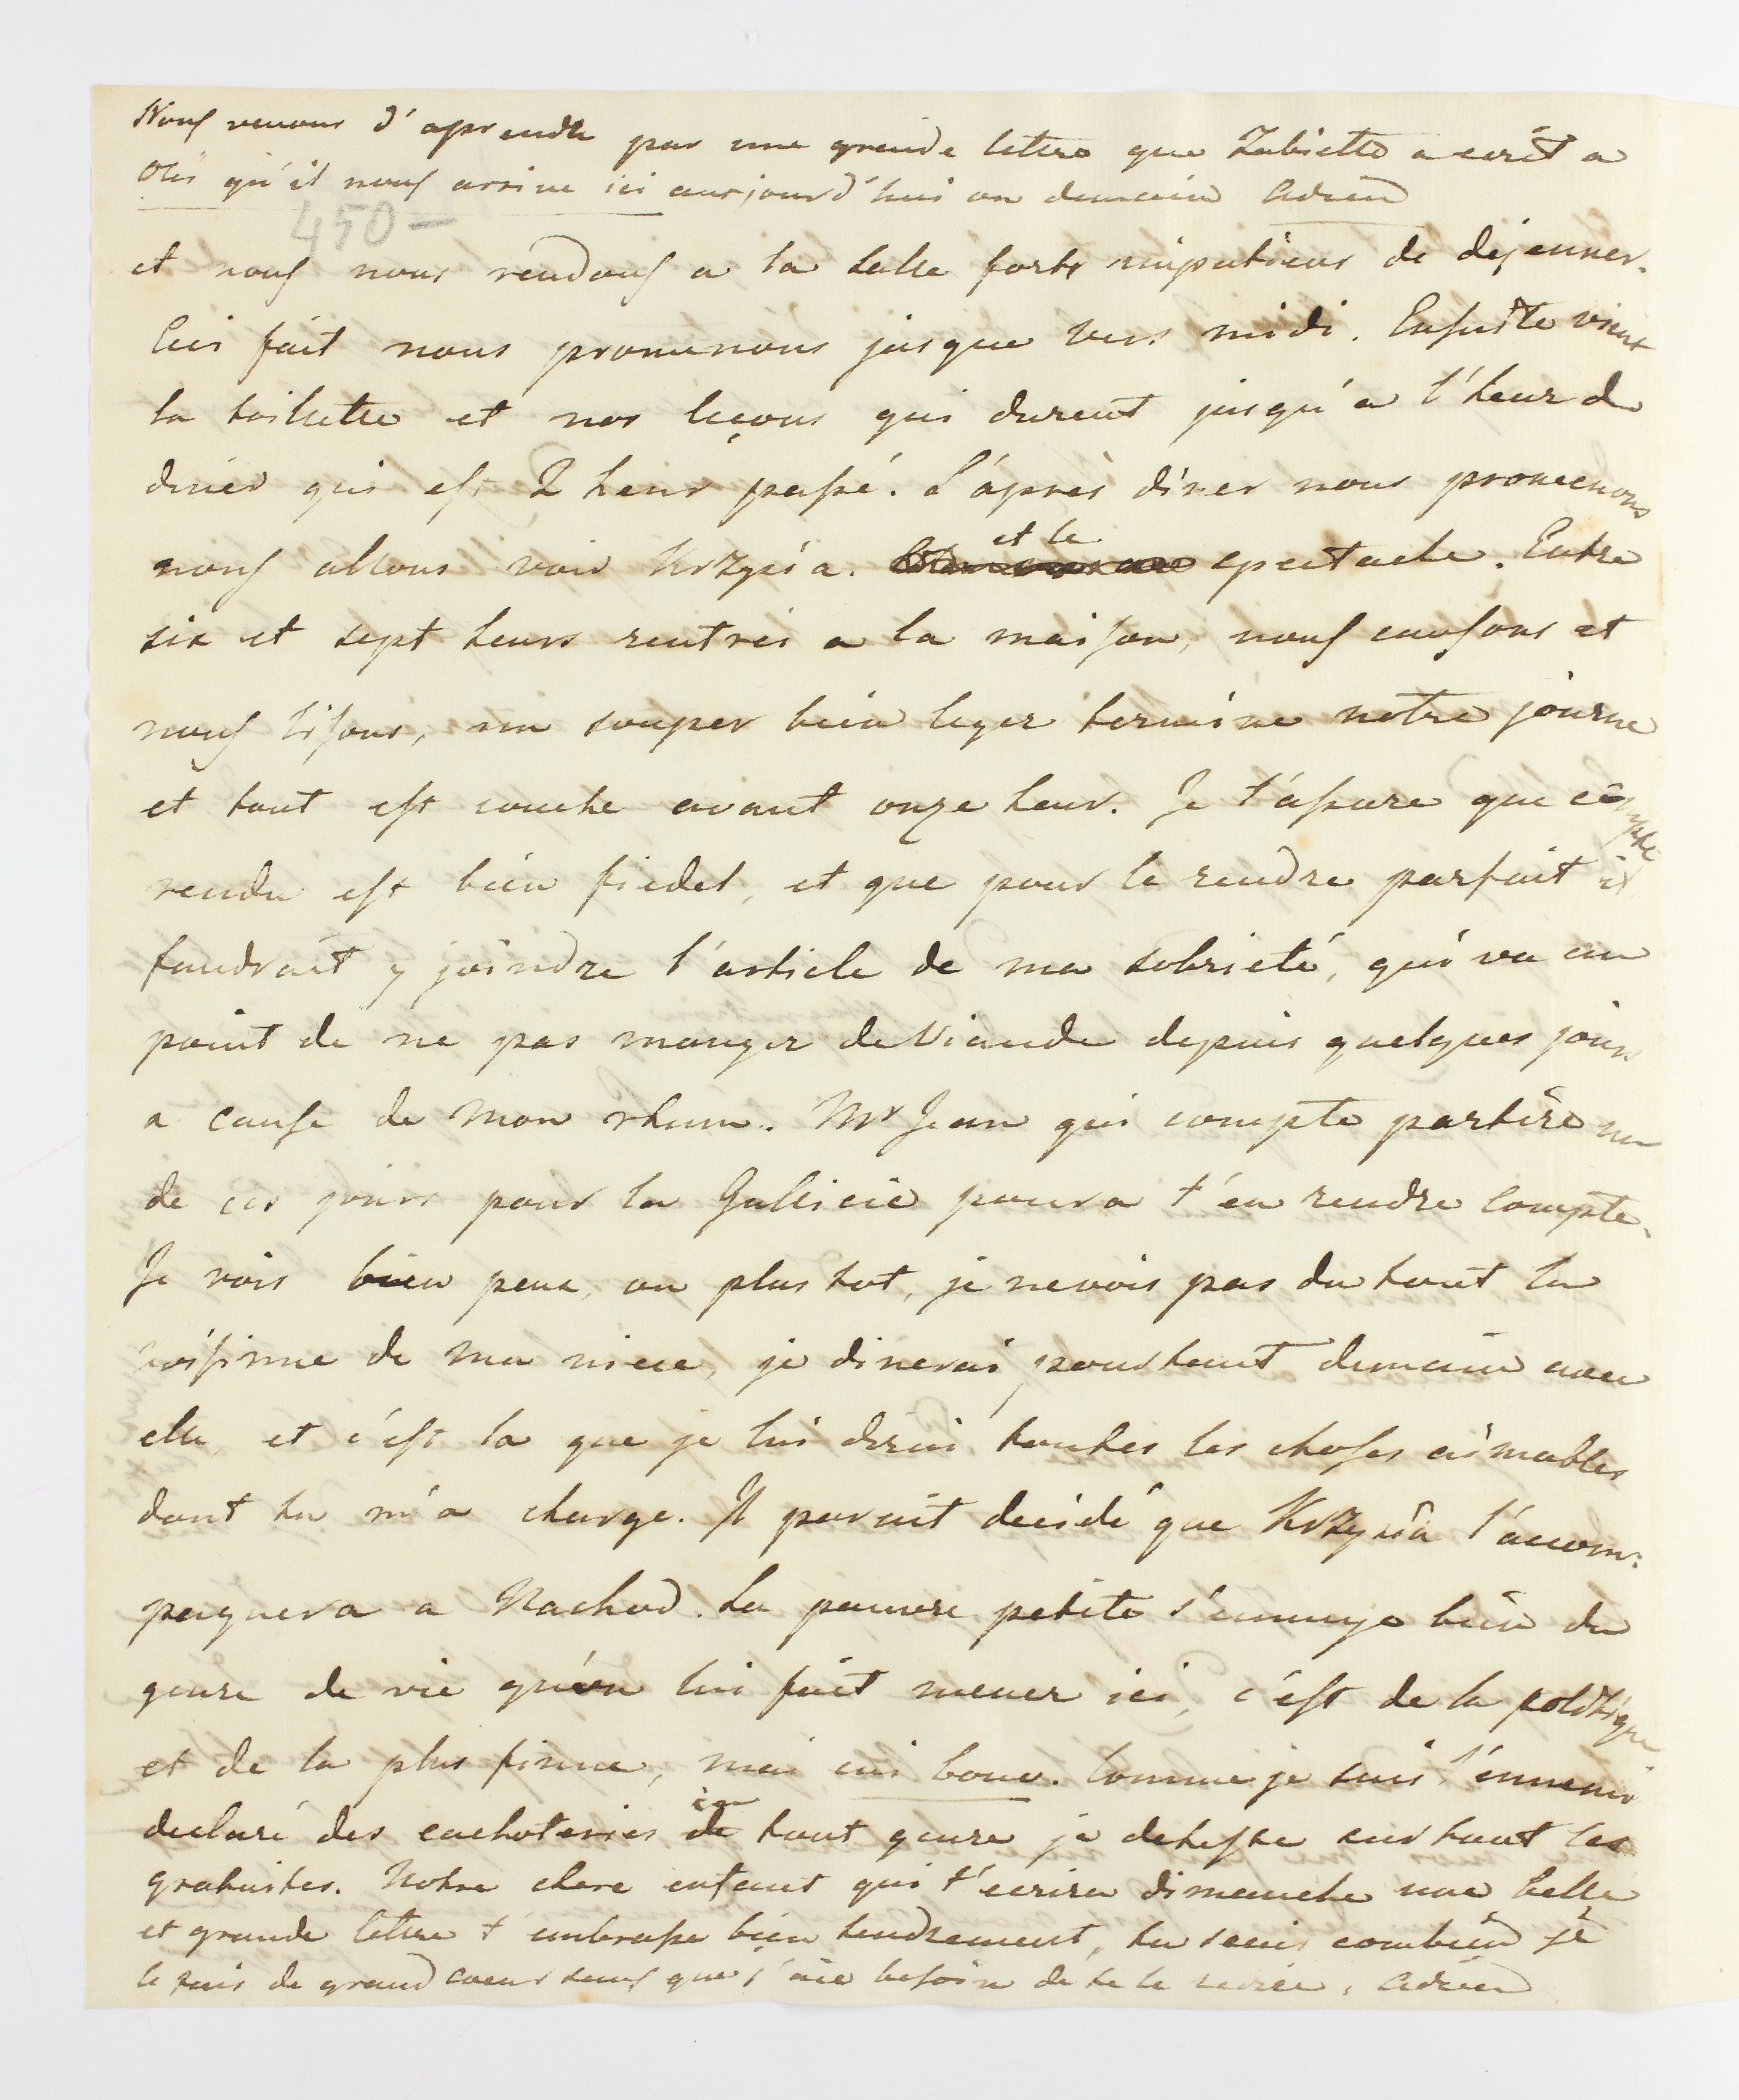 Nous venons d'aprendre par une grande lettre que Zabiette a ecrit a
qu'il nous arrive ici aurjourd'hui ou demain Adieu
450 —
et nous nous rendons a la salle forts impatiens de dejeuner.
Ceci fait nous promenons jusque vers midi. Ensuite vient
la toilette et nos leçons qui durent jusqu'a l'heur de
diner qui est 2 heur passé. L'après diner nous promenons
nous allons voir Krzysia. et le spectacle. Entre
six et sept heurs rentrés a la maison, nous causons et
nous lisons, un souper bien leger termine notre journe
et tout est couche avant onze heur. Je t'assure que ce compte
rendu est bien fiedel, et que pour le rendre parfait il
faudrait y joindre l'article de ma sobrieté, qui va au
point de ne pas manger de Viande depuis quelques jours
a cause de mon rhum. Mr Jean qui compte partire un
de ces jours pour la Gallicie poura t'en rendre compte.
Je vois bien peux, ou plus tot, je ne vois pas du tout la
voisinne de ma niece, je dinerai pourtant demain avec
elle, et c'est la que je lui dirai toutes les choses aimables
dont tu m'a charge. Il parait decidé que Krzysia l'accom:
pagnera a Nachod. La pauvre petite s'ennuye bien du
genre de vie qu'on lui fait mener ici, c'est de la politique
et de la plus finne, mai cui bono. Comme je suis l'ennemi
declaré des cachoteries en de tout genre je deteste surtout les
gratuites. Notre chere enfant qui t'ecrira dimanche une belle
et grande lettre t'embrasse bien tendrement, tu sais combien je
le fais de grand coeur sans que j'aie besoin de te le Adieu